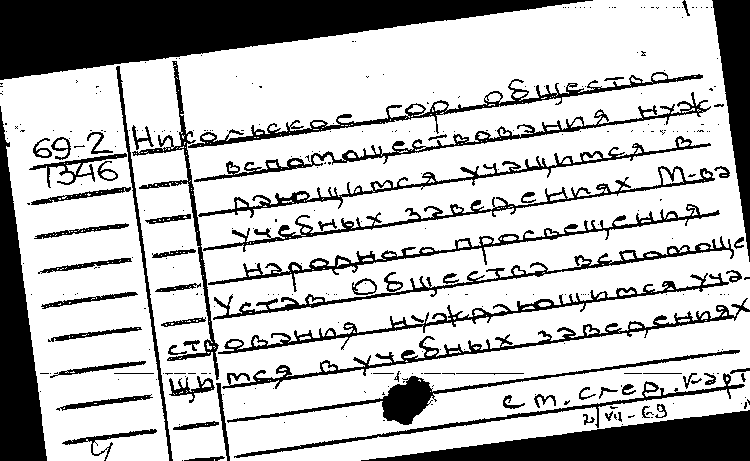 69-2
1346
Никольское гор. общество
вспомоществования нуж-
дающимся учащимся в
учебных заведениях М-ва
народного просвещения
Устав Общества вспомоще
ствования нуждающимся уча-
щимся в учебных заведениях
см. след. карт
2/VII-69